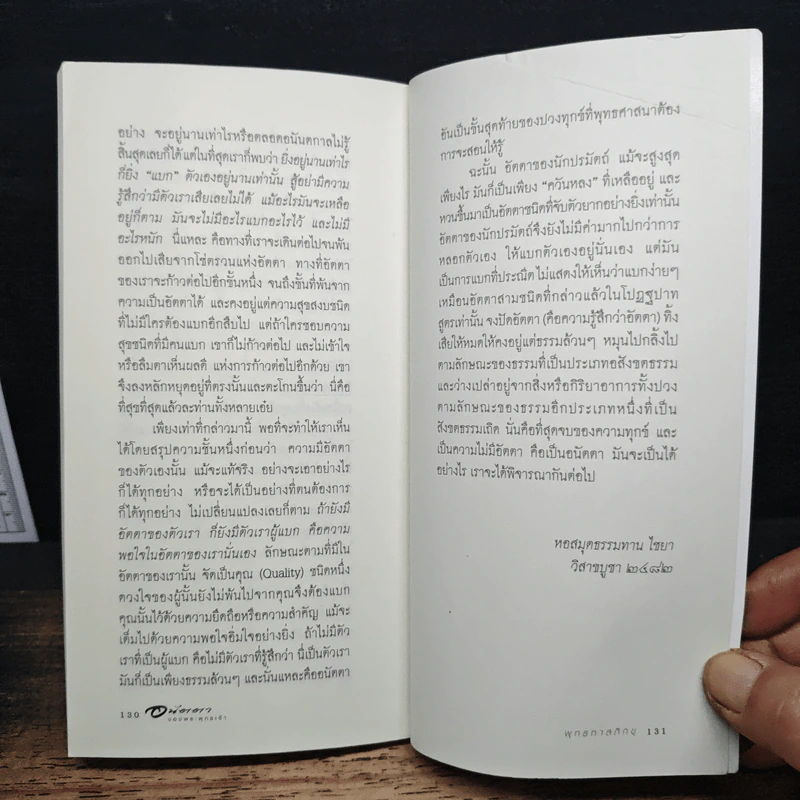 อย่าง จะอยู่นานเท่าไรหรือตลอดอนันตกาลไม่รู้
สิ้นสุดเลยก็ได้ แต่ในที่สุดเราก็พบว่า ยิ่งอยู่นานเท่าไร
ก็ยิ่ง “แบก” ตัวเองอยู่นานเท่านั้น สู้อย่ามีความ
รู้สึกว่ามีตัวเราเสียเลยไม่ได้ แม้อะไรมันจะเหลือ
อยู่ก็ตาม มันจะไม่มีอะไรแบกอะไรไว้ และไม่มี
อะไรหนัก นี่แหละ คือทางที่เราจะเดินต่อไปจนพ้น
ออกไปเสียจากโซ่ตรวนแห่งอัตตา ทางที่อัตตา
ของเราจะก้าวต่อไปอีกขั้นหนึ่ง จนถึงขั้นที่พ้นจาก
ความเป็นอัตตาได้ และคงอยู่แต่ความสุขสงบชนิด
ที่ไม่มีใครต้องแบกอีกสืบไป แต่ถ้าใครชอบความ
สุขชนิดที่มีคนแบก เขาก็ไม่ก้าวต่อไป และไม่เข้าใจ
หรือลืมตาเห็นผลดี แห่งการก้าวต่อไปอีกด้วย เขา
จึงลงหลักหยุดอยู่ที่ตรงนั้นและตะโกนขึ้นว่า นี่คือ
ที่สุขที่สุดแล้วละท่านทั้งหลายเอ๋ย
เพียงเท่าที่กล่าวมานี้ พอที่จะทำให้เราเห็น
ได้โดยสรุปความชั้นหนึ่งก่อนว่า ความมีอัตตา
ของตัวเองนั้น แม้จะแท้จริง อย่างจะเอาอย่างไร
ก็ได้ทุกอย่าง หรือจะได้เป็นอย่างที่ตนต้องการ
ก็ได้ทุกอย่าง ไม่เปลี่ยนแปลงเลยก็ตาม ถ้ายังมี
อัตตาของตัวเรา ก็ยังมีตัวเราผู้แบก คือความ
พอใจในอัตตาของเรานั่นเอง ลักษณะตามที่มีใน
อัตตาของเรานั้น จัดเป็นคุณ (Quality) ชนิดหนึ่ง
ดวงใจของผู้นั้นยังไม่พ้นไปจากคุณจึงต้องแบก
คุณนั้นไว้ด้วยความยึดถือหรือความสำคัญ แม้จะ
เต็มไปด้วยความพอใจอิ่มใจอย่างยิ่ง ถ้าไม่มีตัว
เราที่เป็นผู้แบก คือไม่มีตัวเราที่รู้สึกว่า นี่เป็นตัวเรา
มันก็เป็นเพียงธรรมล้วนๆ และนั่นแหละคืออนัตตา
130 อนัตตา
ของพระพุทธเจ้า
อันเป็นขั้นสุดท้ายของปวงทุกข์ที่พุทธศาสนาต้อง
การจะสอนให้รู้
ฉะนั้น อัตตาของนักปรมัตถ์ แม้จะสูงสุด
เพียงไร มันก็เป็นเพียง “ควันหลง” ที่เหลืออยู่ และ
หวนขึ้นมาเป็นอัตตาชนิดที่จับตัวยากอย่างยิ่งเท่านั้น
อัตตาของนักปรมัตถ์จึงยังไม่มีค่ามากไปกว่าการ
หลอกตัวเอง ให้แบกตัวเองอยู่นั่นเอง แต่มัน
เป็นการแบกที่ประณีต ไม่แสดงให้เห็นว่าแบกง่ายๆ
เหมือนอัตตาสามชนิดที่กล่าวแล้วในโปฏฐปาท
สูตรเท่านั้น จงปัดอัตตา (คือความรู้สึกว่าอัตตา) ทิ้ง
เสียให้หมดให้คงอยู่แต่ธรรมล้วนๆ หมุนไปกลิ้งไป
ตามลักษณะของธรรมที่เป็นประเภทอสังขตธรรม
และว่างเปล่าอยู่จากสิ่งหรือกิริยาอาการทั้งปวง
ตามลักษณะของธรรมอีกประเภทหนึ่งที่เป็น
สังขตธรรมเถิด นั่นคือที่สุดจบของความทุกข์ และ
เป็นความไม่มีอัตตา คือเป็นอนัตตา มันจะเป็นได้
อย่างไร เราจะได้พิจารณากันต่อไป
หอสมุดธรรมทาน ไชยา
วิสาขบูชา ๒๔๘๒
พุทธทาสภิกขุ 131